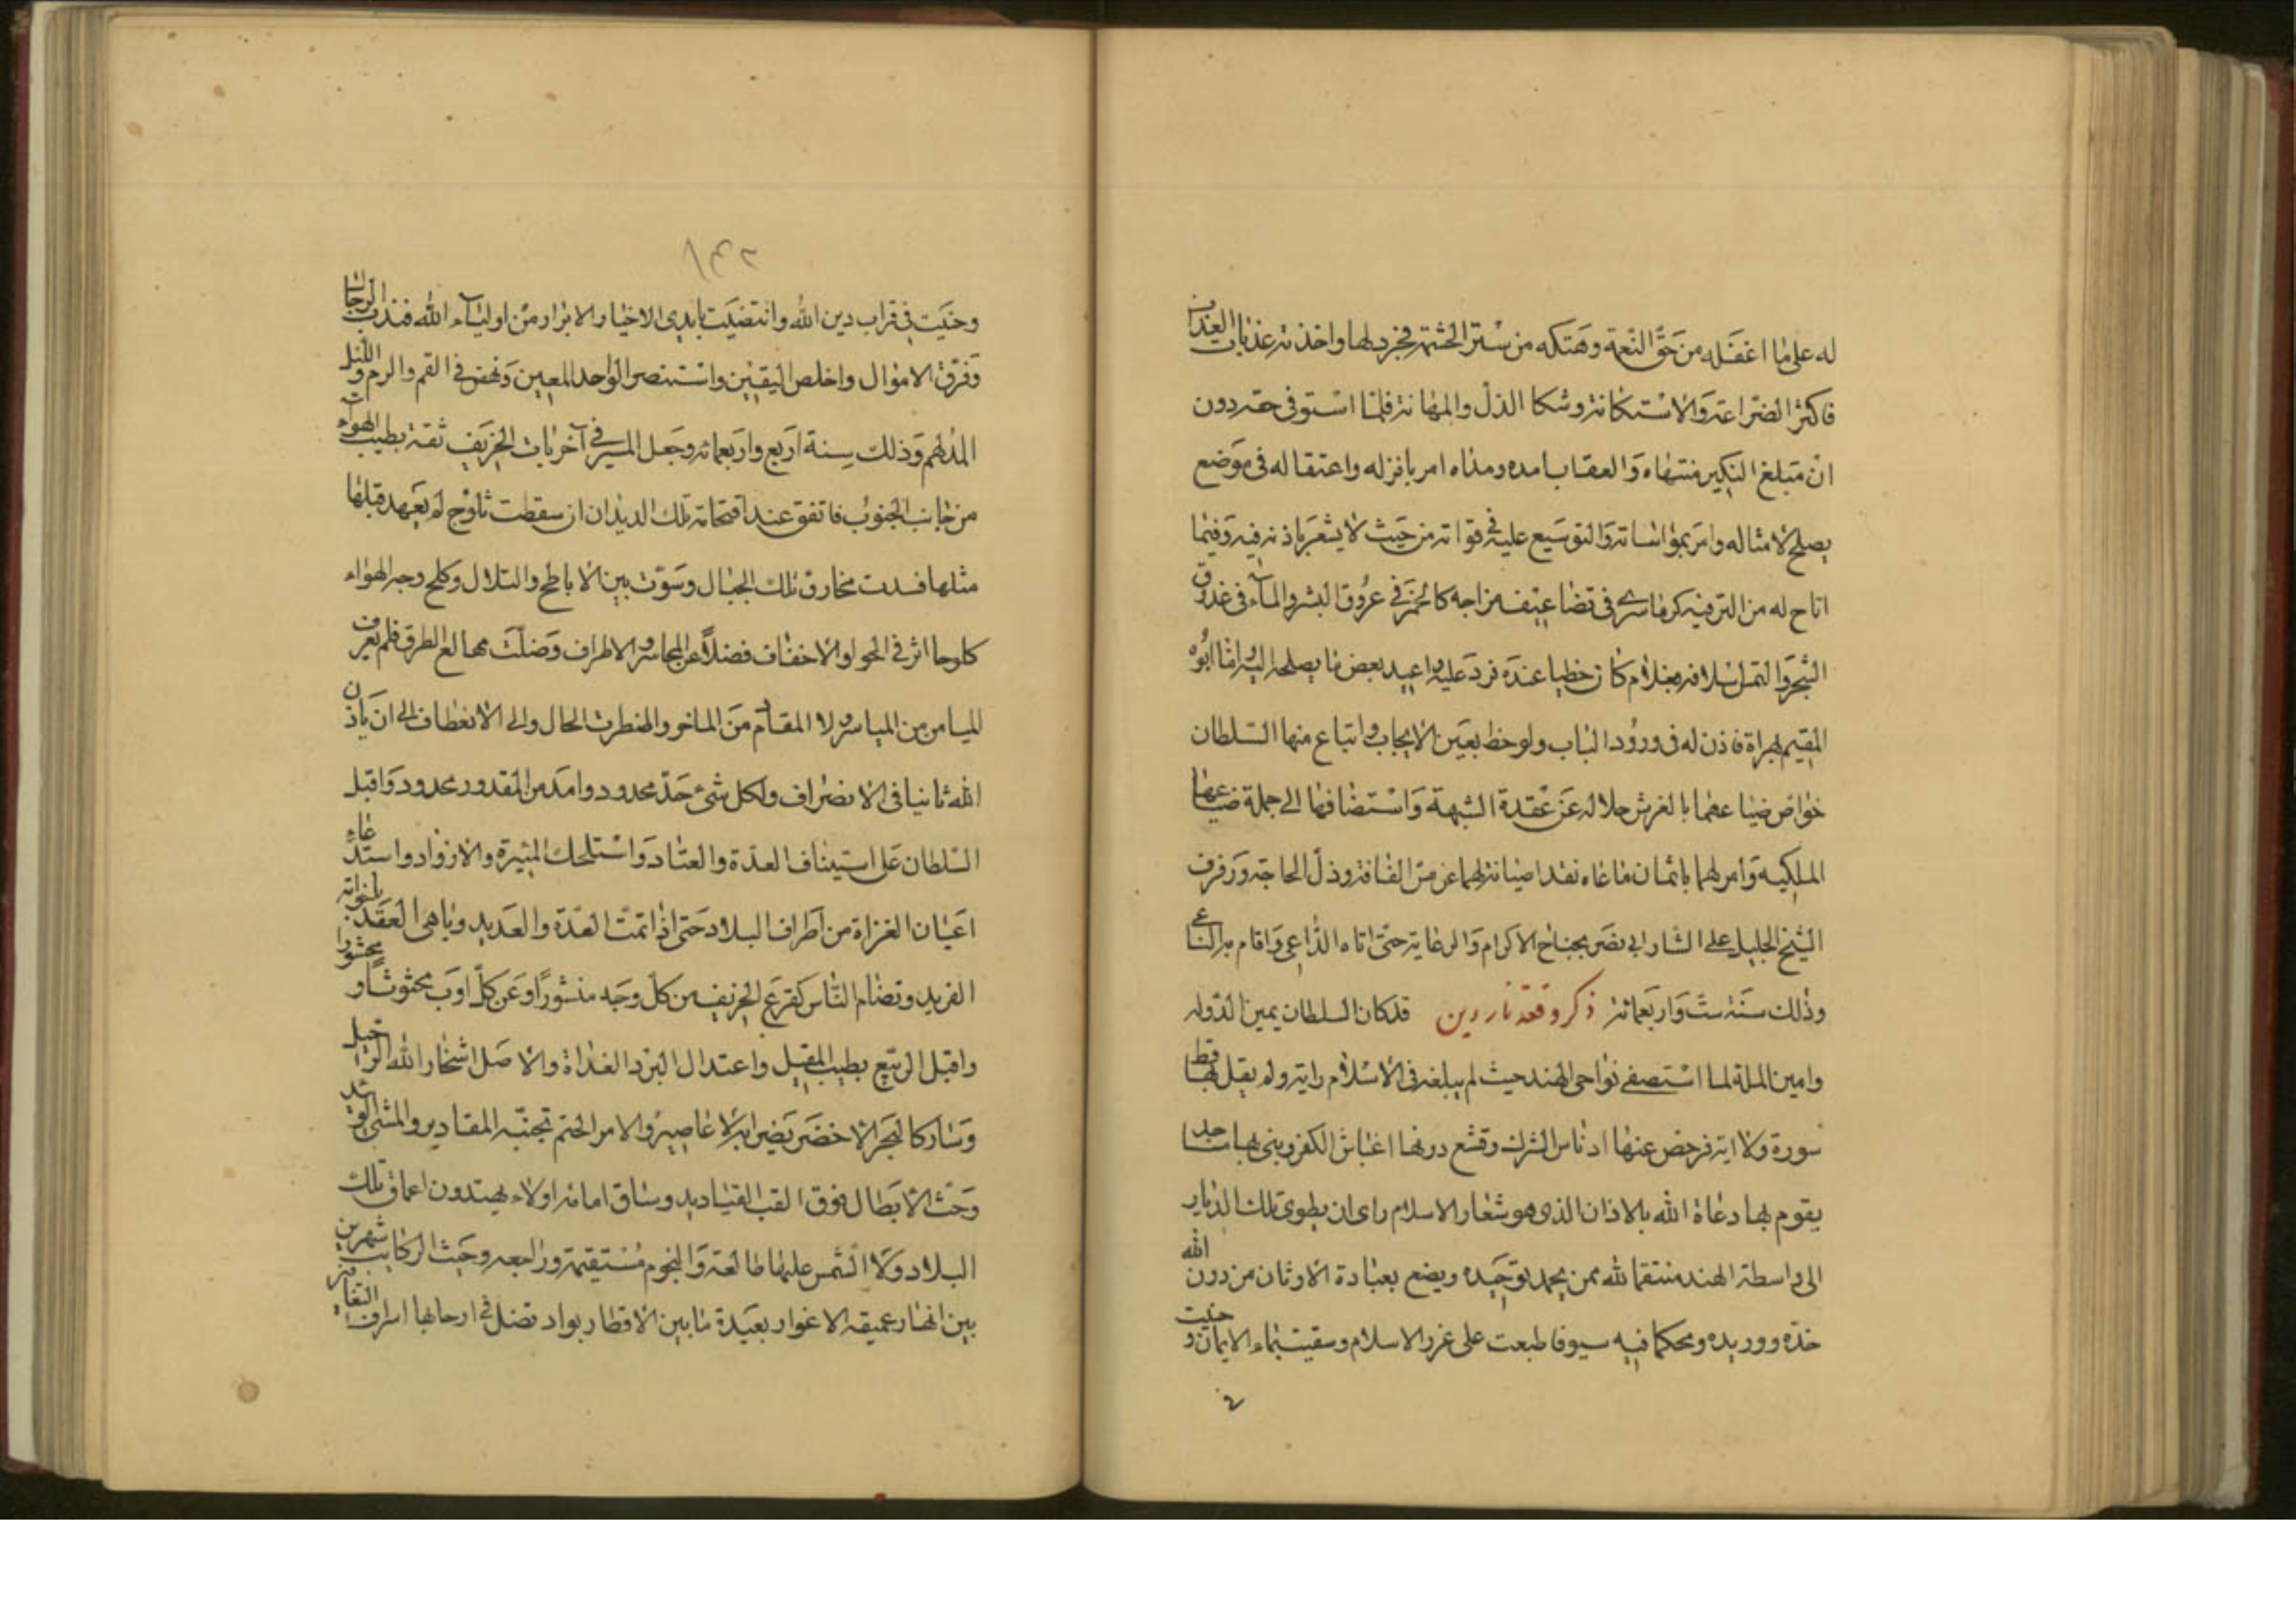 له على ما اغفله من حق النعمة وهتكه من ستر الحشمة فجرد لها واخذته عذبات العذاب
فاكثر الضراعة والاستكانة وشكا الذل والمهانة فلما استوفى حقه دون
ان تبلغ النكير منتهاه والعقاب امده ومداه امر بانزله واعتقاله فى موضع
يصلح لامثاله وامر بمؤاساته والتوسيع عليه فى قواته من حيث لا يشعر باذنه فيه وفيما
اتاح له من الترفيه كرما سرى فى تضاعيف مزاجه كالخمر فى عروق البشر والماء فى غدوق
الشجر والتمس اسلافه بغلام كان حظيا عنده فرد عليه واعيد بعض ما يصلحه اليه واما ابوه
المقيم بهراة فاذن له فى ورود الباب ولوحظ بعين الايجاب وابتاع منها السلطان
خواص ضياعهما بالغرش حلاله عن عقدة الشبهة واستضافها الى جملة ضياعها
الملكيه وامر لهما باثمان ماعاه نقدا صيانة لهما عن مس الفاقة وذل الحاجة ورفرف
الشيخ الجليل على الشار ابى نصر بجناح الاكرام والرعاية حتى اتاه الداعى واقام به الناعى
وذلك سنة ست واربعمائة ذكر وقعة ناردين قد كان السلطان يمين الدوله
وامين الملة لما استصفى نواحى الهند حيث لم يبلغه فى الاسلام راية ولم يقل بها قط
سورة ولا اية فرحض عنها ادناس الشرك وقشع دونها اغباش الكفر وبنى بها مساجد
يقوم بها دعاة الله بالاذان الذى هو شعار الاسلام راى ان يطوى تلك الديار
الى واسطة الهند منتقما لله ممن يجحد توحيده ويضع بعبادة الاوثان من دون الله
خده ووريده ومحكما فيه سيوفا طبعت على غرر الاسلام وسقيت بماء الايمان وحنيت
٢٣١
وحنيت فى قراب دين الله وانتضيت بايدى الاخيار والابرار من اولياء الله فندب الرجال
وفرق الاموال واخلص اليقين واستنصر الواحد المعين ونهض فى القم والرم والليل
المدلهم وذلك سنة اربع واربعمائة وجعل المسير فى آخريات الخريف ثقة بطيب الهواء
من جانب الجنوب فاتفق عند اقتحامه تلك الديار ان سقطت ثلوج لم يعهد قبلها
مثلها فسدت مخارق تلك الجبال وسوت بين الاباطح والتلال وكلح وجه الهواء
كلوحا اثر فى الحوافر والاخفاف فضلا عن المحاسر والاطراف وضلت مهايع الطرق فلم يعرف
الميامن من المياسر ولا المقادم من المآخر واضطرت الحال والى الانعطاف الى ان ياذن
الله ثانيا فى الانصراف ولكل شئ حد محدود وامد من المقدور محدود واقبل
السلطان على استيناف العدة والعتاد واستلحاك الميرة والازواد واستدعاء
اعيان الغزاة من اطراف البلاد حتى اذا تمت العدة والعديد وباهى العقد بلغواته
الفريد وتضام الناس كقزع الخريف من كل وجه منشورا وعن كل اوب محثوثا ومحشورا
واقبل الربيع بطيب المقيل واعتدال البرد الغداة والاصل استخار الله الرحيل
وسار كالبحر الاخضر تضربه الاعاصير والامر الحتم تجنبه المقادير والمشى الوئيد
وحث الابطال فوق القب القياديد وساق امامه اولاء يهتدون اعماق تلك
البلاد ولا الشمس عليها طالعة والنجوم مستقيمة وراجعه وحث الركايب شهرين
بين انهار عميقه الاغوار بعيدة ما بين الاقطار بواد تضل فى ارجائها اسراف